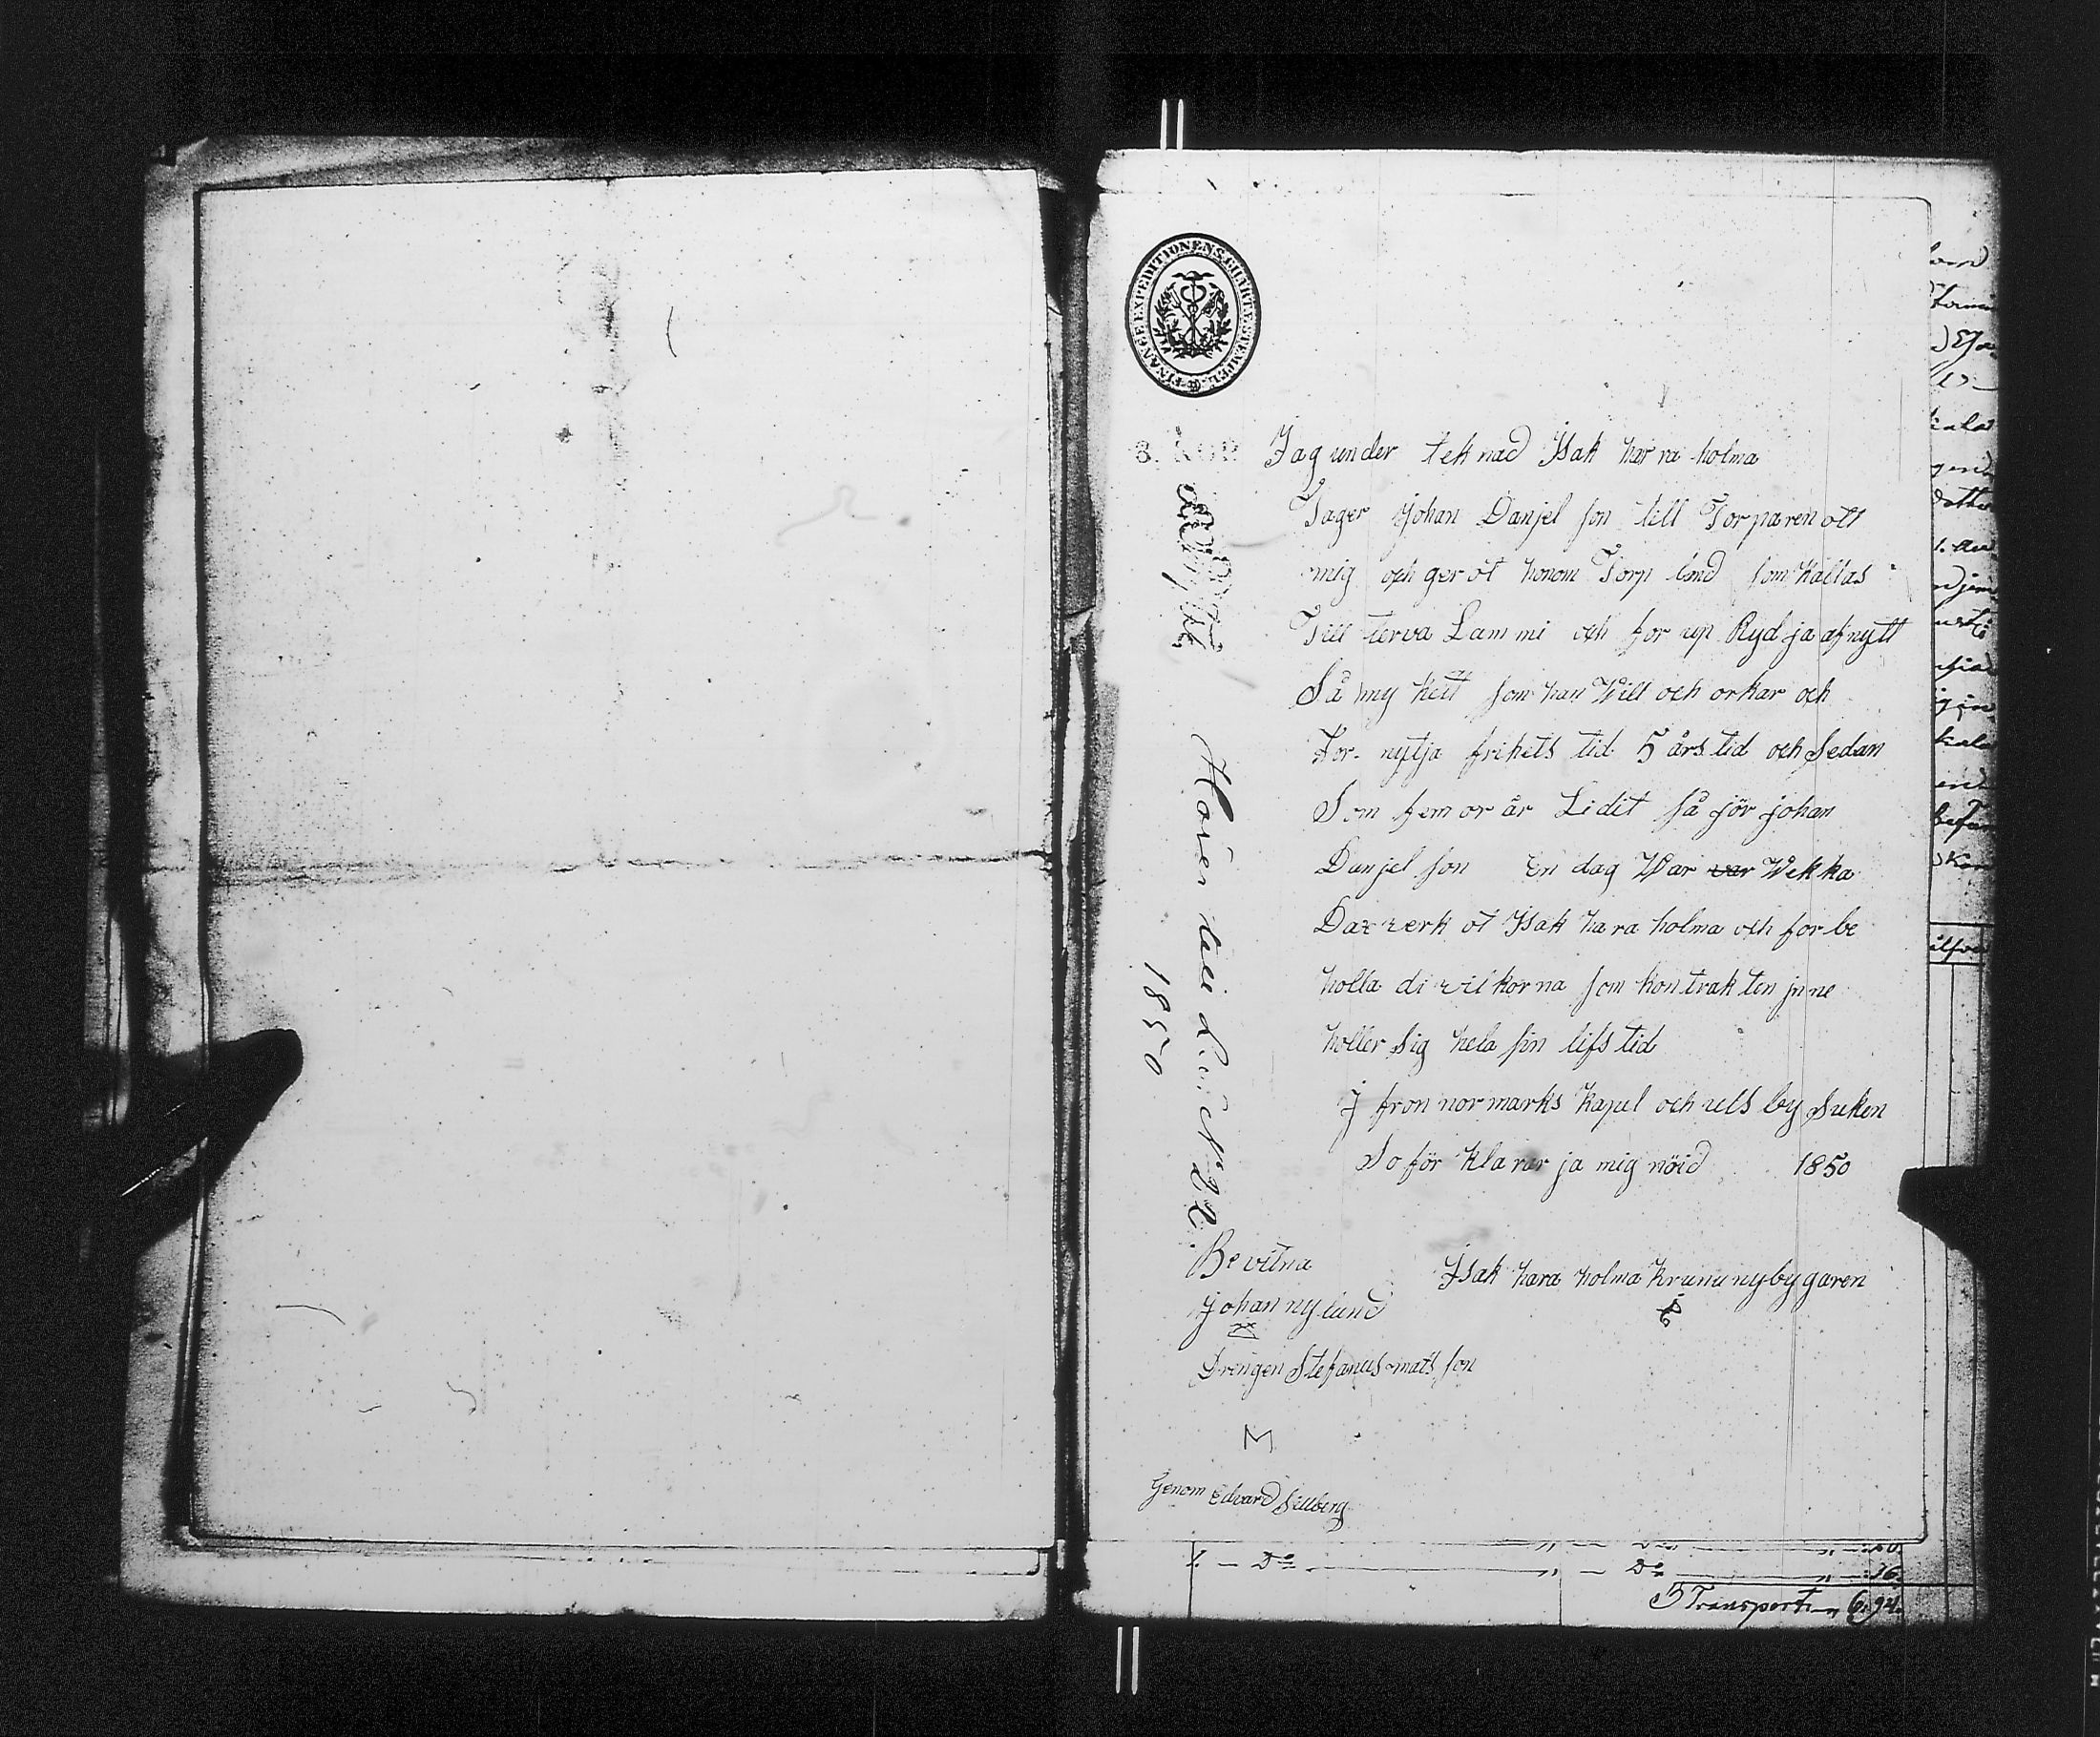 FINANCE EXPEDITIONENS CHARTÆ STEMPEL
3. KOP
Jag under tek nad Isak har ra holma
Tager Johan Danjel son till Torparen ott
mig och ger ot honom Torp land som kallas
Till terva Lam mi och for up Rydja af nytt
Så my keit som han Will och orkar och
For- nytja frihets tid 5 års tid och Sedan
Som fem or är Lidit så jör johan
Danjel son En dag War var Wekka
Dax verk ot Isak hara holma och for be
holla di vilkorna som kontrakten jnne
holler Sig hela sin lifs tid
J fron nor marks kapel och uls by Suken
So för kla rar ja mig nöid 1850
Be vitna
Isak hara holma krunu nybygaren
johan ny lund
Drengen Stefanus mats son
M
Genom Edvard Sillberg
1850
1. — Do — „ — Do — „ — :16.
Transport „ 6:94.